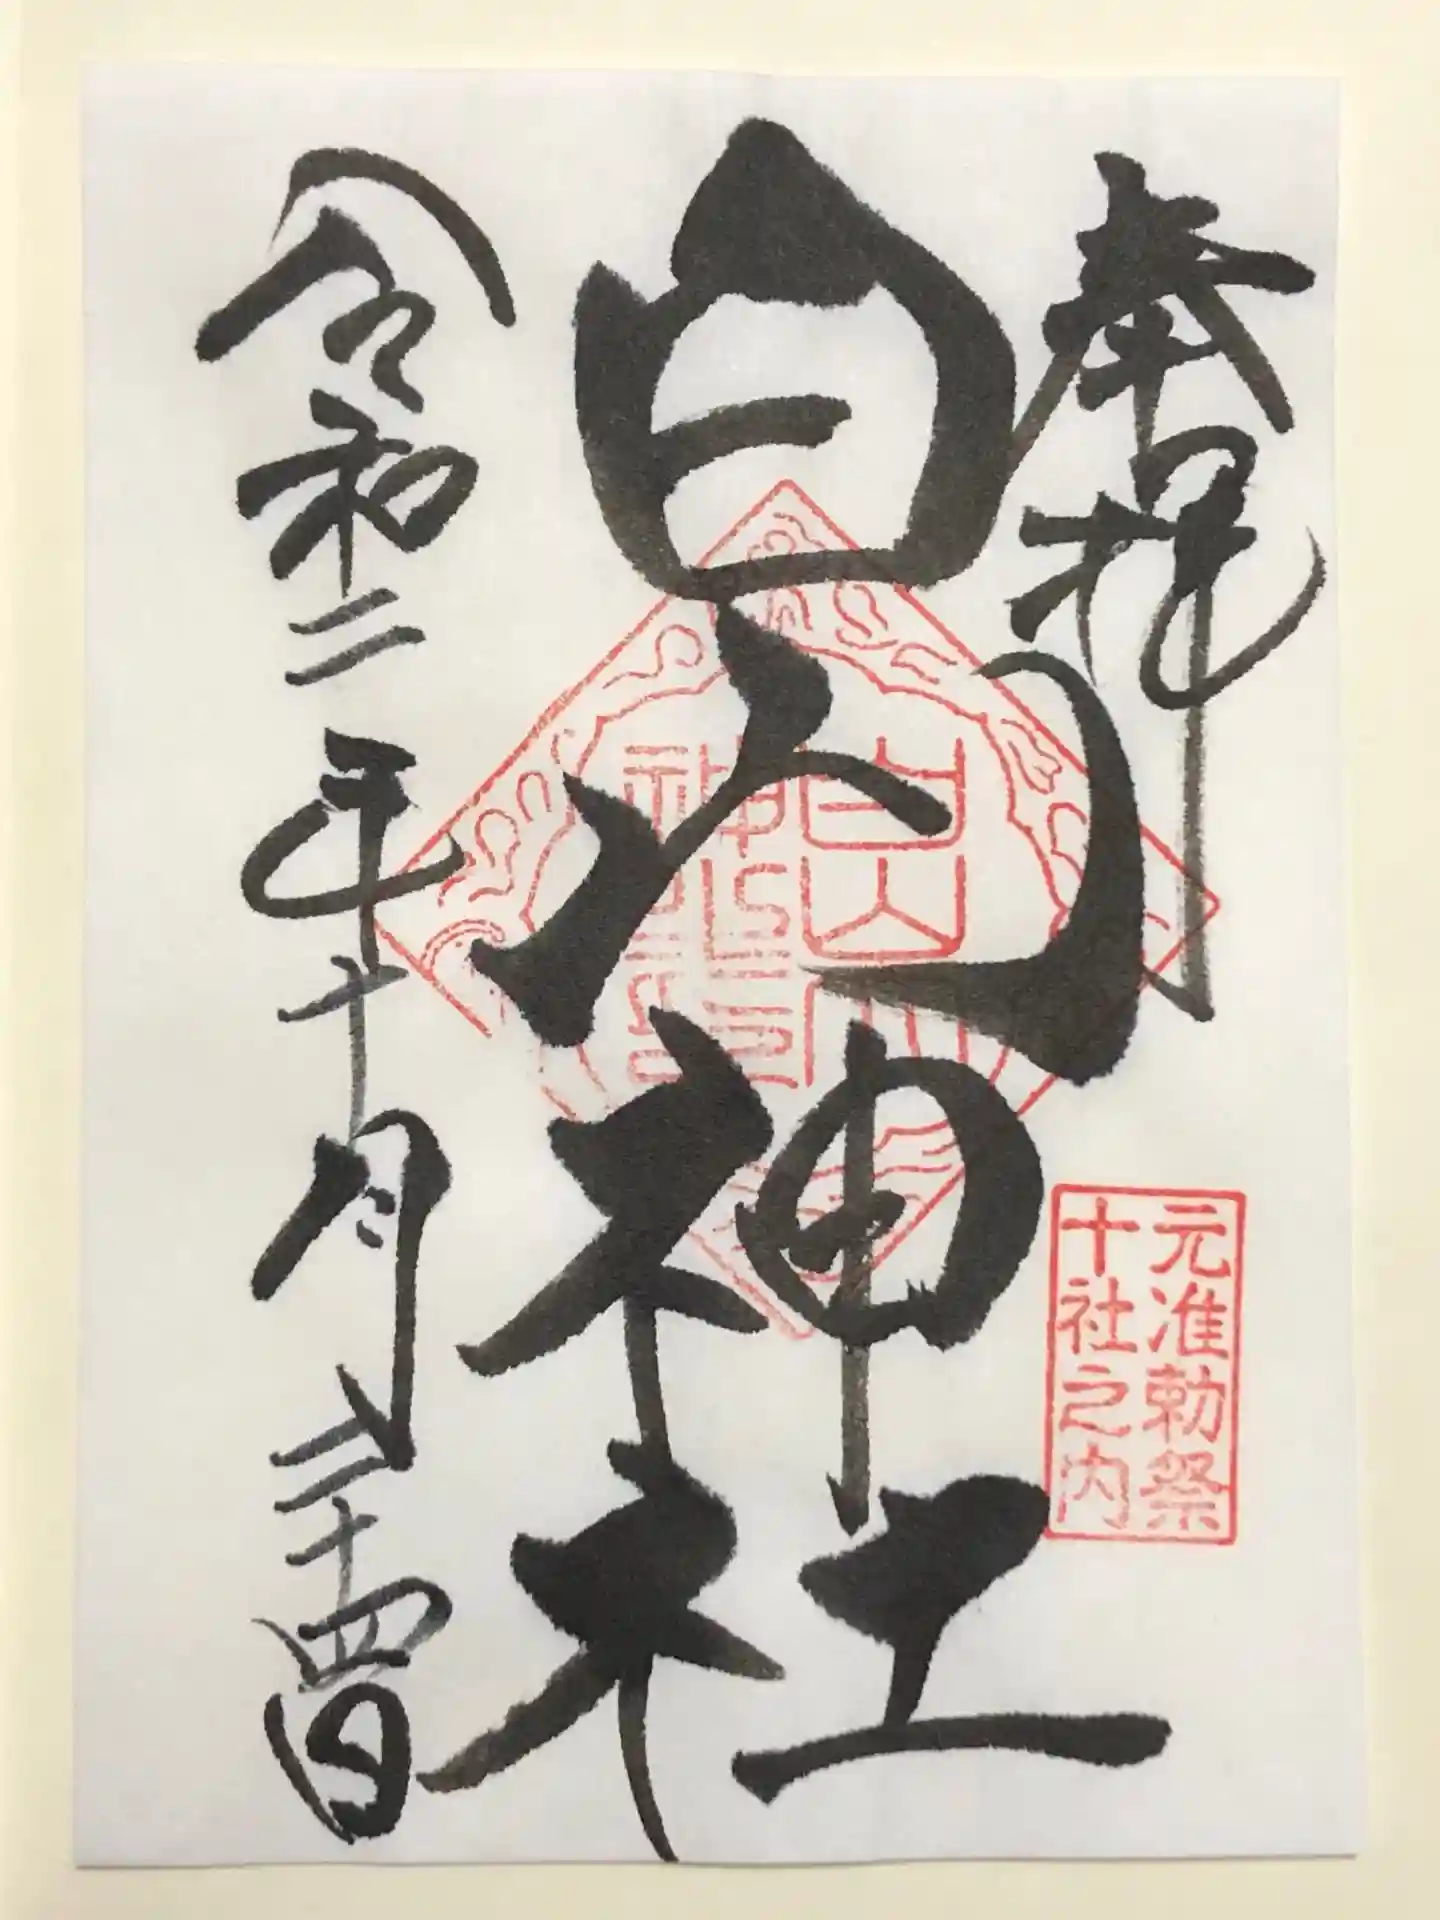 奉拝
白山神社
令和二年十月二十四日
元准勅祭
十社之内
白山
神社